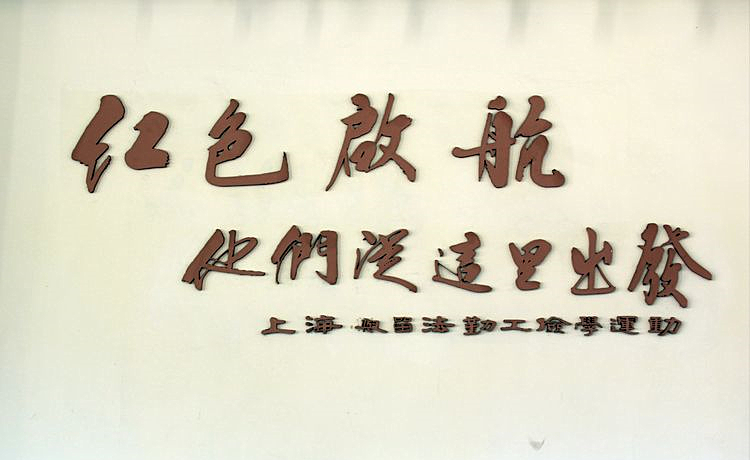 红色啟航
他們從這里出發
上海與留法勤工儉學運動